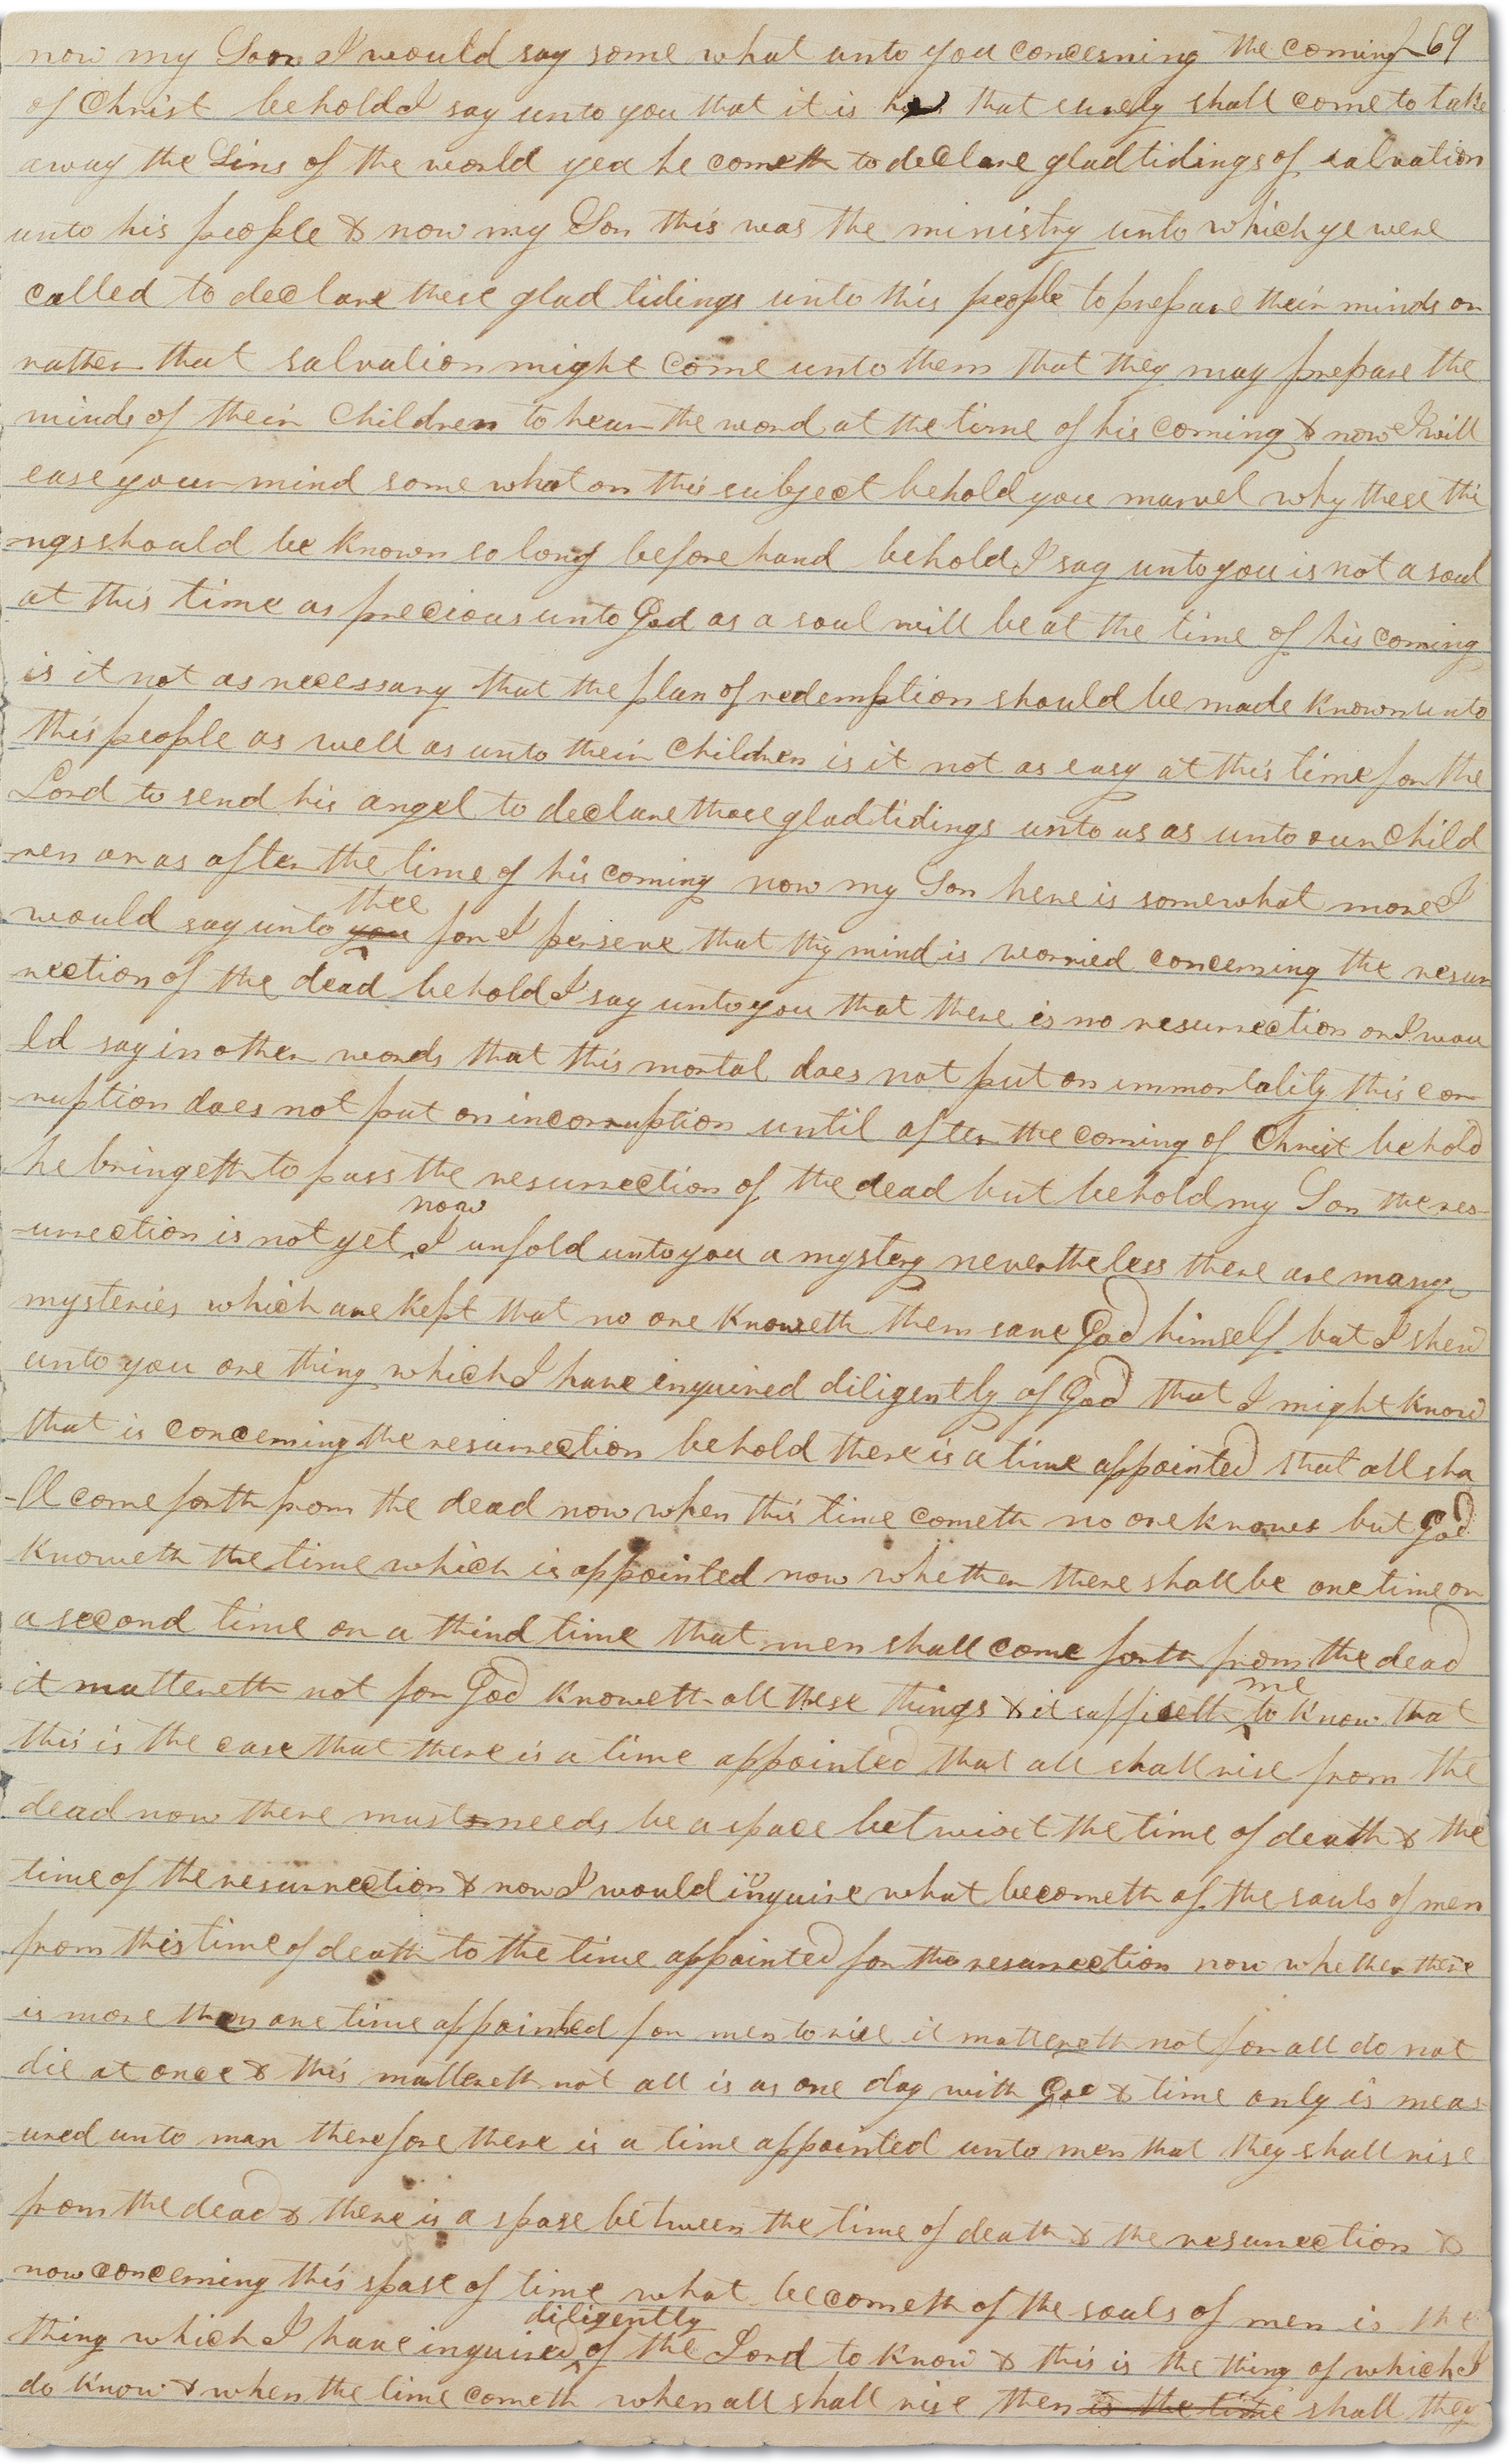 now my Son I would say some what unto you concerning the coming 69
of Christ behold I say unto you that it is he that surely shall come to take
away the Sins of the world yea he cometh to declare glad tidings of salvation
unto his people & now my Son this was the ministry unto which ye were
called to declare these glad tidings unto this people to prepare their minds or
rather that salvation might come unto them that they may prepare the
minds of their Children to hear the word at the time of his coming & now I will
ease your mind some what on this subject behold you marvel why these thi
-ngs should be known so long before hand behold I say unto you is not a soul
at this time as precious unto God as a soul will be at the time of his coming
is it not as necessary that the plan of redemption should be made known unto
this people as well as unto their Children is it not as easy at this time for the
Lord to send his angel to declare those glad tidings unto us as unto our Child
-ren or as after the time of his coming now my Son here is somewhat more I
thee
would say unto you for I perseve that thy mind is worried concerning the resur
rection of the dead behold I say unto you that there is no resurrection or I wou
ld say in other words that this mortal does not put on immortality this cor
-ruption does not put on incorruption until after the coming of Christ behold
he bringeth to pass the resurrection of the dead but behold my Son the res-
now
-urrection is not yet I unfold unto you a mystery nevertheless there are many
mysteries which are kept that no one knoweth them save God himself but I shew
unto you one thing which I have inquired diligently of God that I might know
that is concerning the resurrection behold there is a time appointed that all sha
-ll come forth from the dead now when this time cometh no one knows but God
knoweth the time which is appointed now whether there shall be one time or
a second time or a third time that men shall come forth from the dead
me
it mattereth not for God knoweth all these things & it sufficeth to know that
this is the case that there is a time appointed that all shall rise from the
dead now there must needs be a space betwixt the time of death & the
time of the resurrection & now I would inquire what becometh of the souls of men
from this time of death to the time appointed for the resurrection now whether there
is more than one time appointed for men to rise it mattereth not for all do not
die at once & this mattereth not all is as one day with God & time only is meas
-ured unto man therefore there is a time appointed unto men that they shall rise
from the dead & there is a spase between the time of death & the resurrection &
now concerning this spase of time what becometh of the souls of men is the
diligently
thing which I have inquired of the Lord to know & this is the thing of which I
do know & when the time cometh when all shall rise then is the time shall they